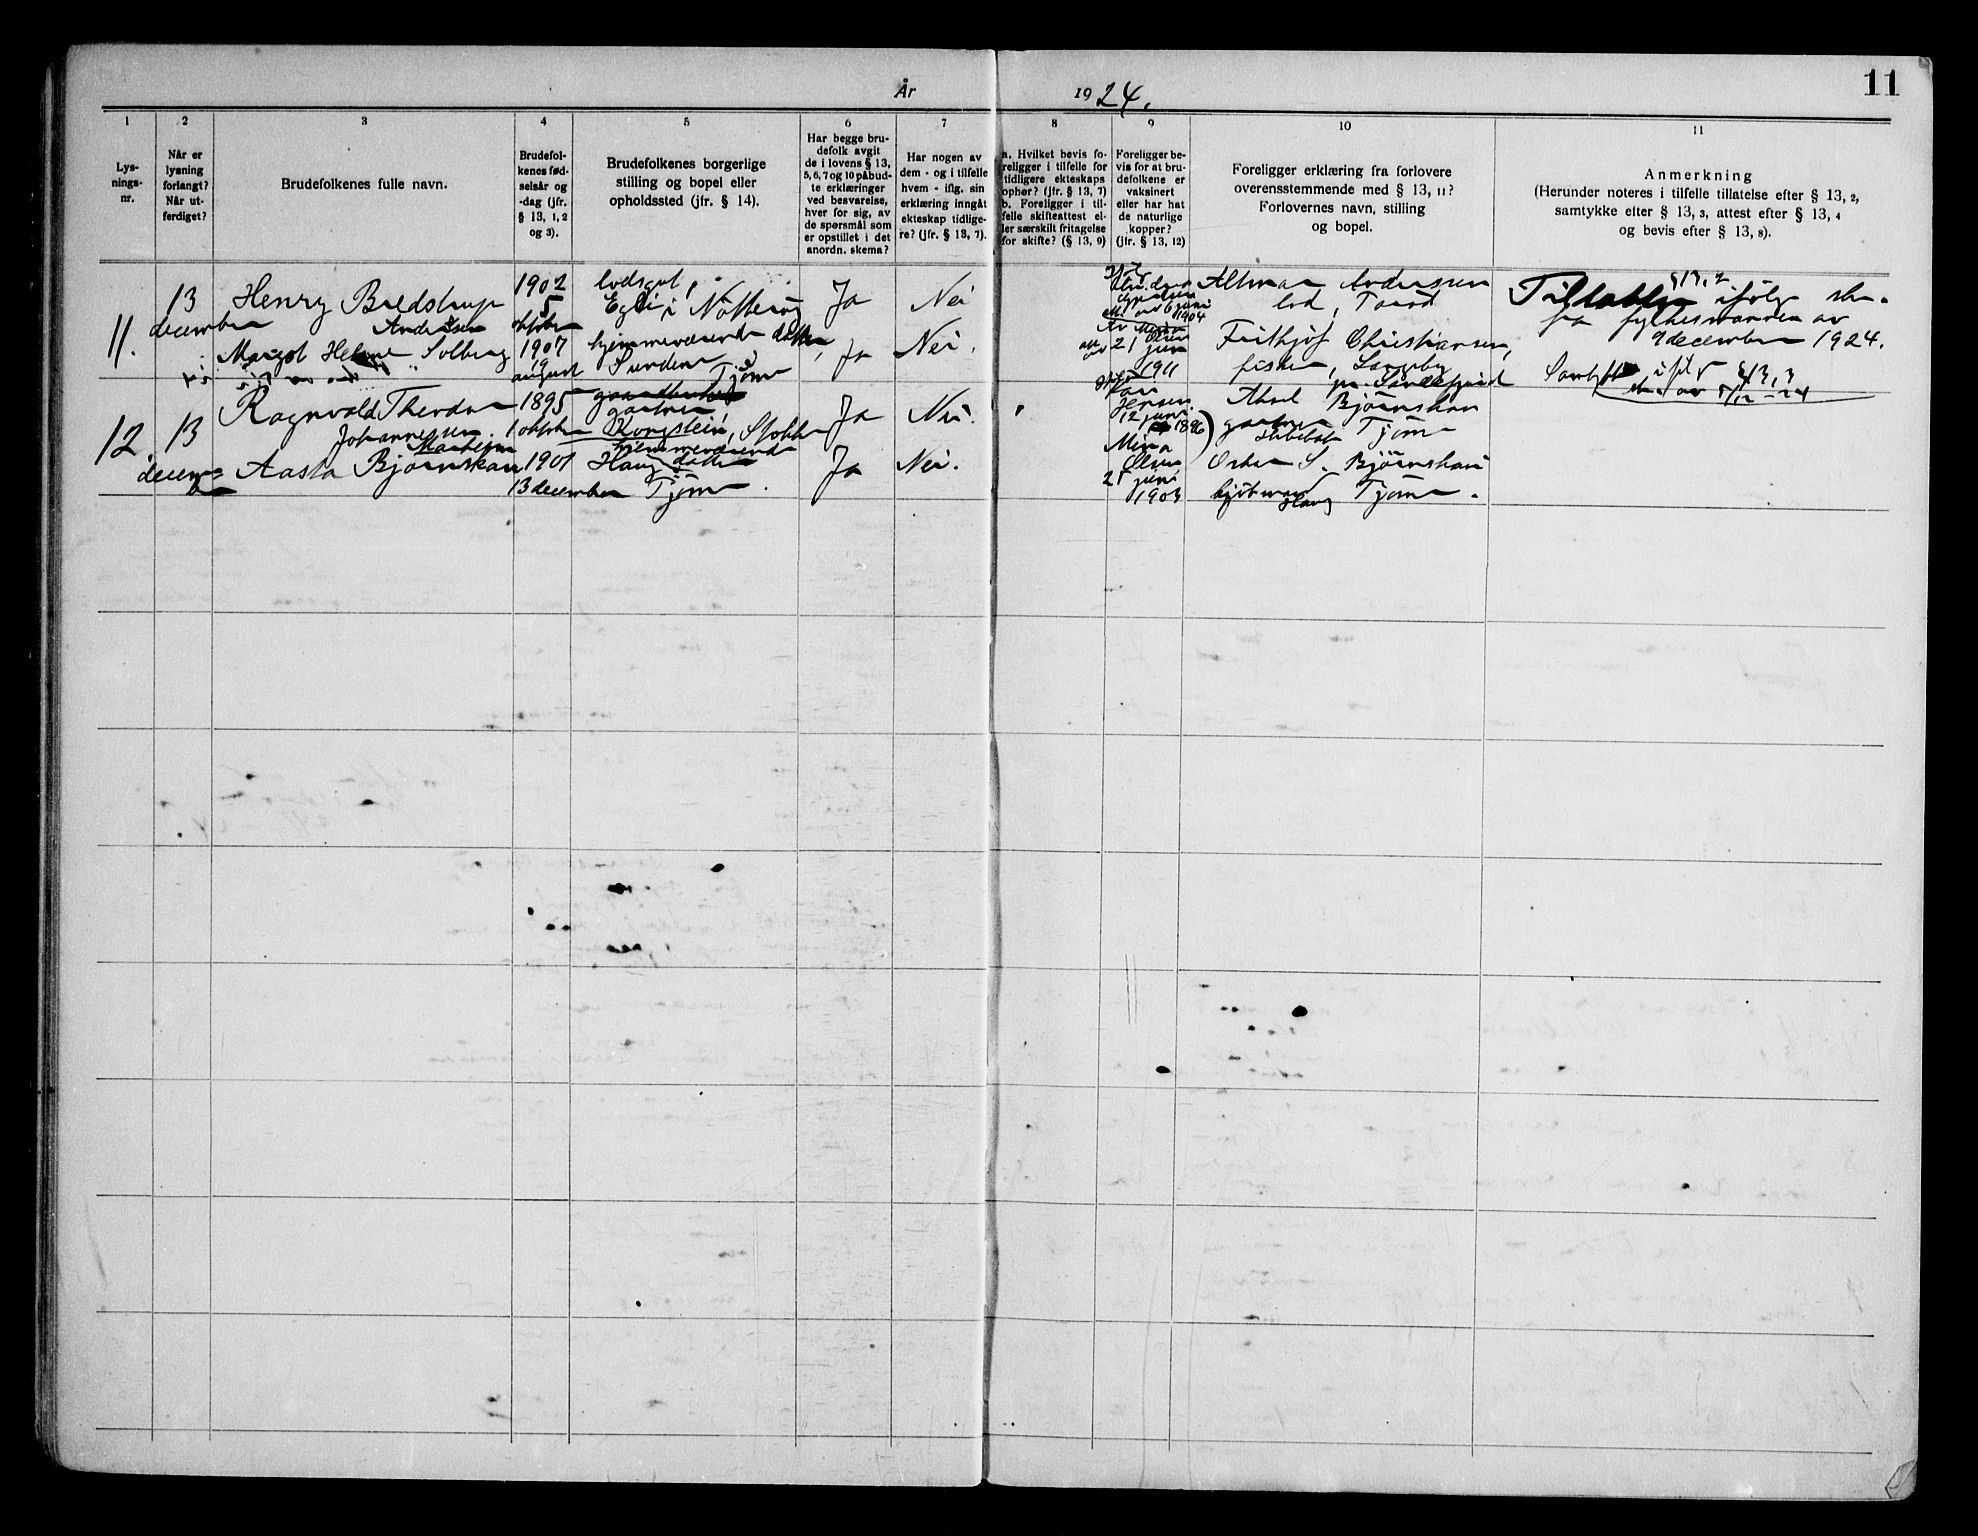 11
År 1924.
1
2
3
4
5
6
7
8
9
10
11
Lys-
nings-
nr.
Når er
lysning
forlangt?
Når ut-
ferdiget?
Brudefolkenes fulle navn.
Brudefol-
kenes fød-
selsår og
-dag (jfr.
§ 13, 1, 2
og 3).
Brudefolkenes borgerlige
stilling og bopel eller
opholdssted (jfr. § 14).
Har begge bru-
defolk avgit
de i lovens § 13,
5, 6, 7 og 10 påbud-
te erklæringer
ved besvarelse,
hver for sig, av
de spørsmål som
er opstillet i det
anordn. skema?
Har nogen av
dem - og i tilfelle
hvem - iflg. sin
erklæring inngåt
ekteskap tidlige-
re? (jfr. § 13, 7).
a. Hvilket bevis fo-
religger i tilfelle for
tidligere ekteskaps
ophør? (jfr. § 13, 7)
b. Foreligger i til-
felle skifteattest el-
ler særskilt fritagelse
for skifte? (§ 13, 9)
Foreligger be-
vis for at bru-
defolkene er
vaksinert
eller har hat
de naturlige
kopper?
(jfr. § 13, 12)
Foreligger erklæring fra forlovere
overensstemmende med § 13, 11?
Forlovernes navn, stilling
og bopel.
Anmerkning
(Herunder noteres i tilfelle tillatelse efter § 13, 2,
samtykke efter § 13, 3, attest efter § 13, 4
og bevis efter § 13, 8).
11.
13
december
Henry Bredstrup
Andersen
1902
5
oktober
lodsgut,
Nøtterøy
Ja
Nei
6 juni
1904
Altmar Andersen
lod,
§ 13, 2
Tillatelse ifølge
fra fylkesmannen av
9 december 1924.
Margot Helene Solberg
1907
19
august
hjemmeværende datter,
Sunden
Tjøme
Ja
Nei.
21
juni
1911
Frithjof Christiansen,
fisker,
pr. Sandefjord
§ 13, 3
12.
13
decem-
ber
Ragnvald Theodor
Johannessen
1895
1 oktober
gartner
Kongstein, Stokke
Ja
Nei.
Jensen
12 juni
1896
Aksel Bjørnskau
gartner
Tjøme
Aasta Bjørnskau
1901
13 december
hjemmeværende
Haug datter
Tjøme.
Ja
Nei.
Mina
Olsen
25 juni
1903
Oskar S. Bjørnskau
Haug Tjøme.